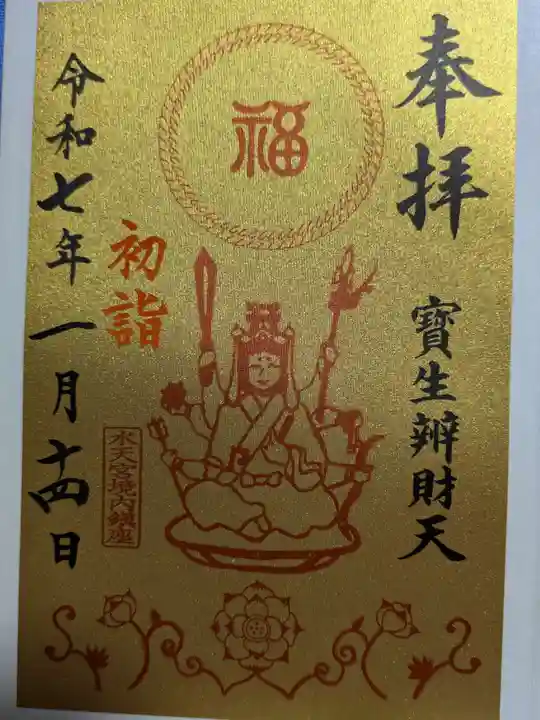 奉拝
寶生辨財天
福
初詣
水天宮境内鎮座
令和七年一月十四日